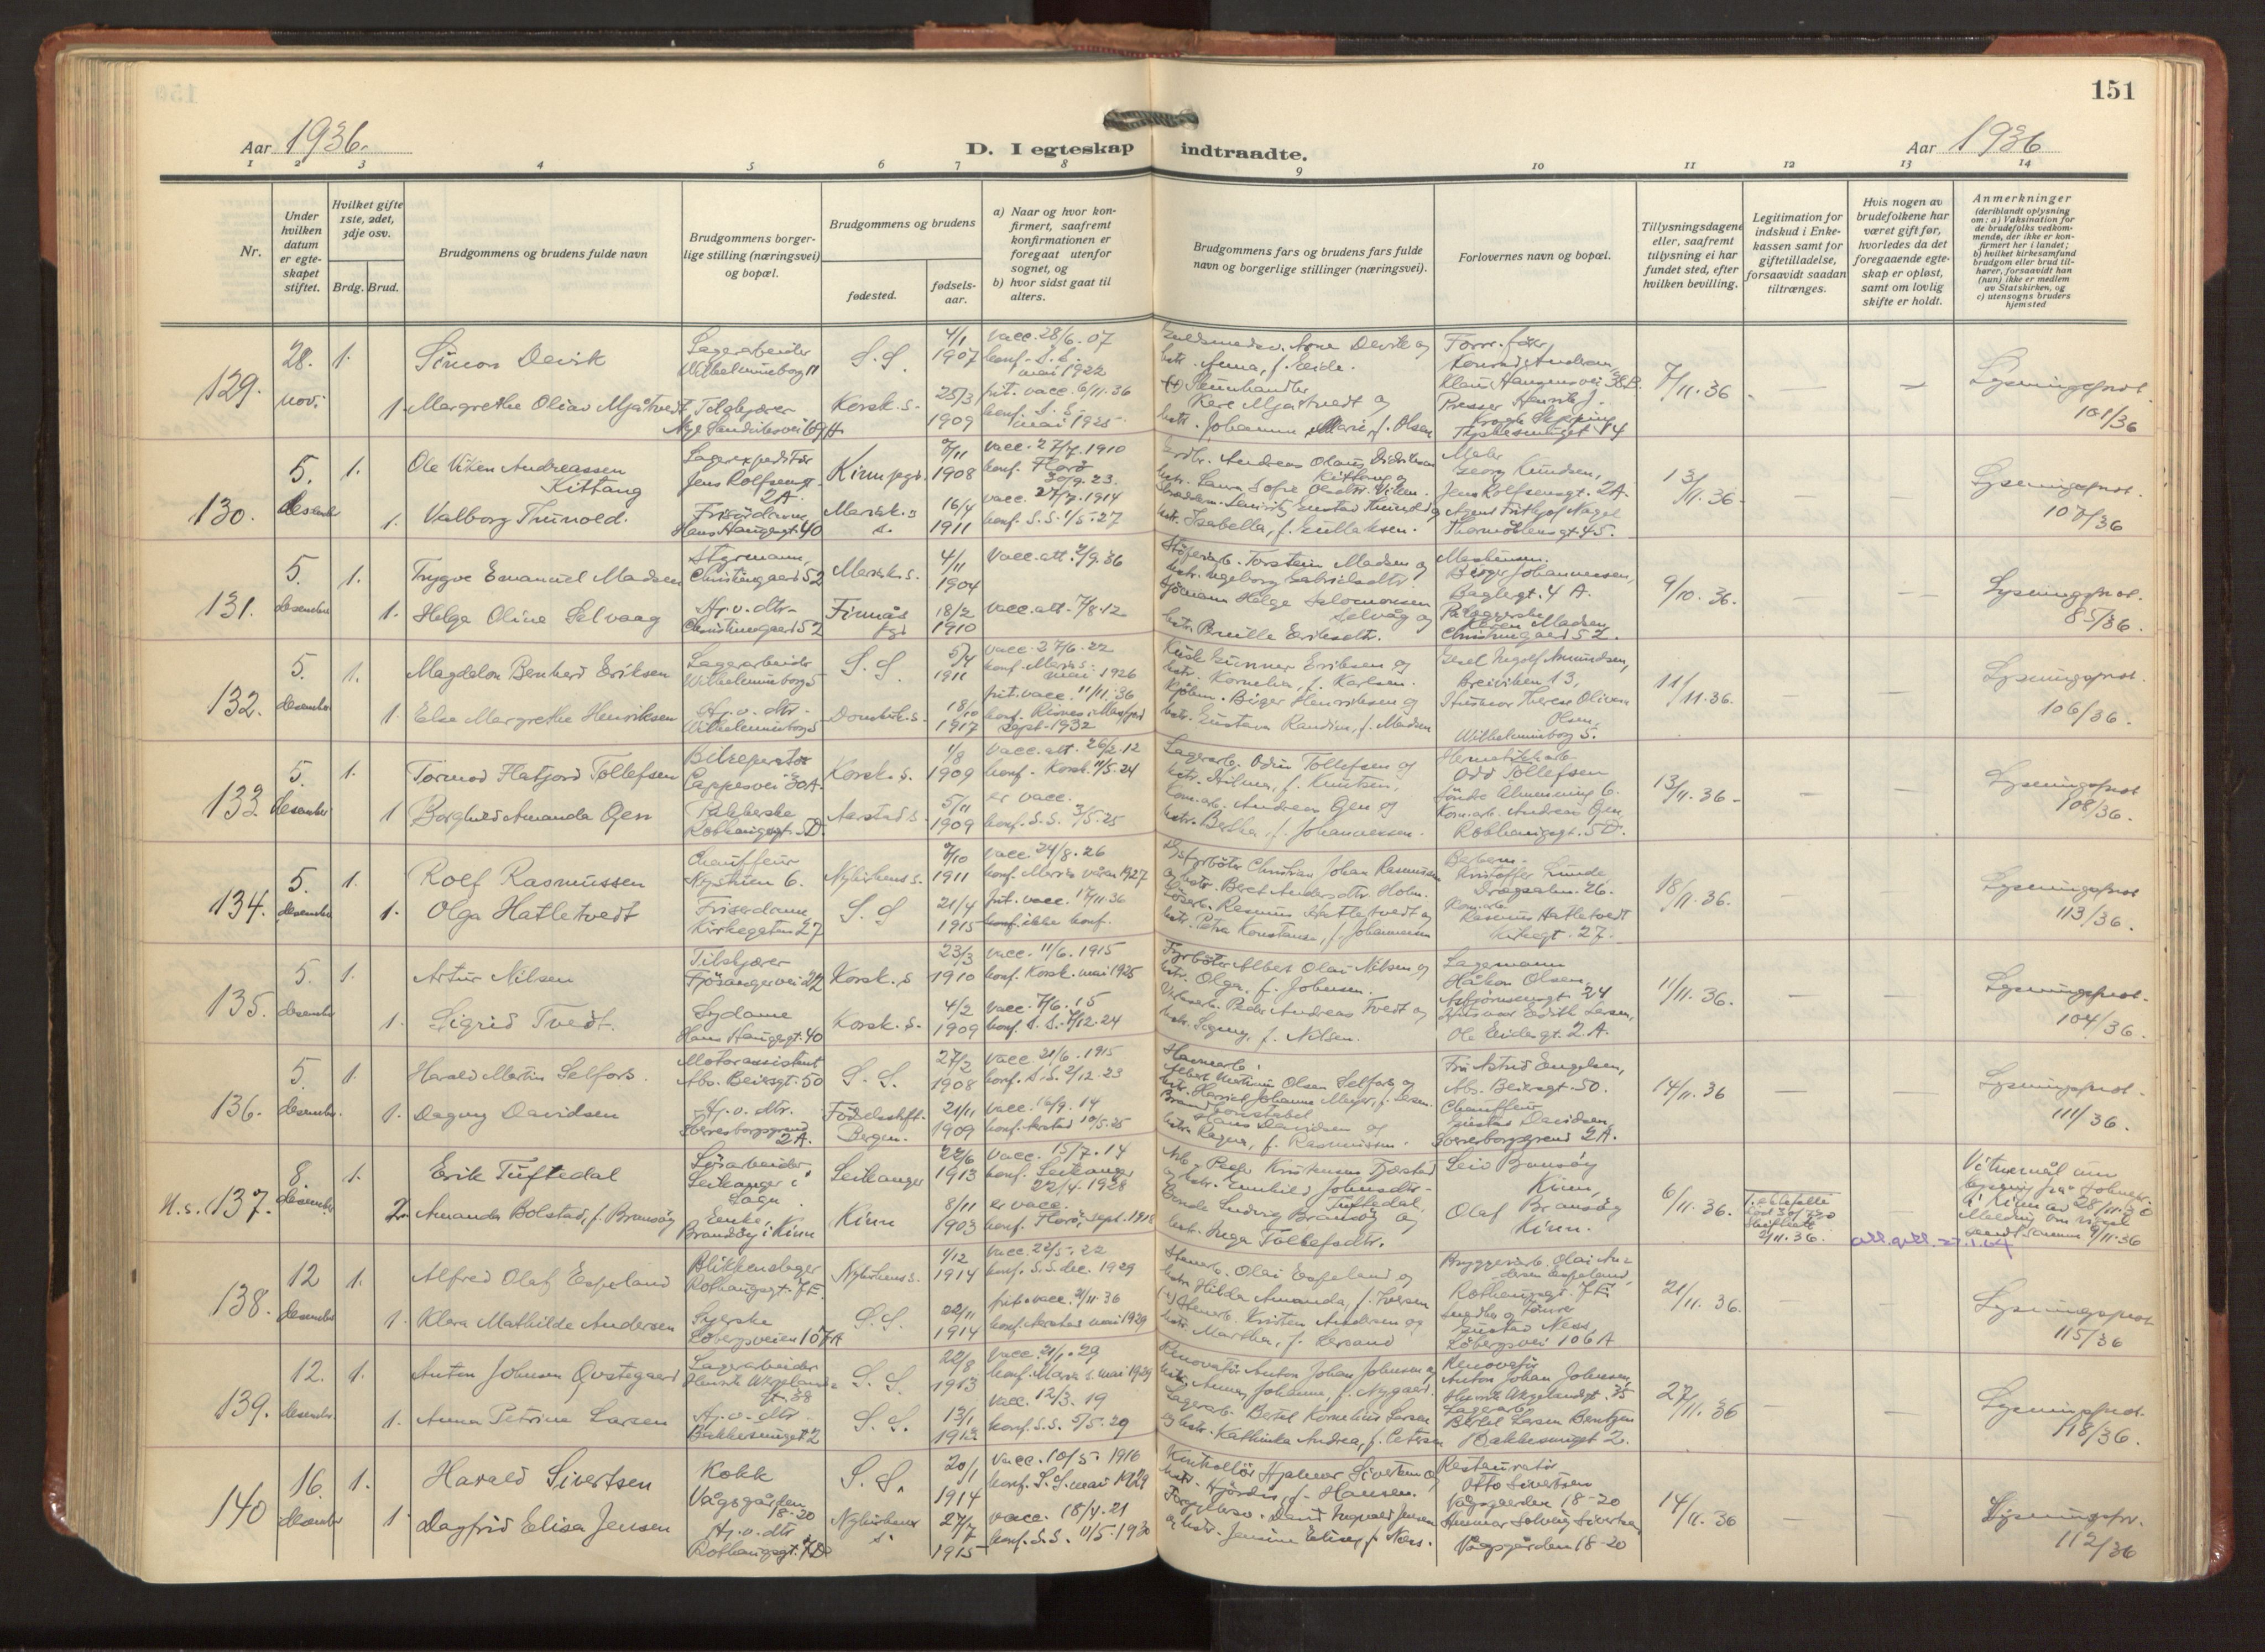 151
Aar 1936.
D. Iegteskap indtraadte.
Aar 1936
1 2 3 4 5 6 7 8 9 10 11 12 13 14
Nr.
Under hvilken datum er egte-skapet stiftet.
Hvilket gifte 1ste, 2det, 3dje osv.
Brdg. Brud.
Brudgommens og brudens fulde navn
Brudgommens borger-lige stilling (næringsvei) og bopæl.
Brudgommens og brudens
fødested.
fødsels-aar.
a) Naar og hvor kon-firmert, saafremt konfirmationen er foregaat utenfor sognet, og
b) hvor sidst gaat til alters.
Brudgommens fars og brudens fars fulde navn og borgerlige stillinger (næringsvei).
Forlovernes navn og bopæl.
Tillysningsdagene eller, saafremt tillysning ei har fundet sted, efter hvilken bevilling.
Legitimation for indskud i Enke-kassen samt for giftetilladelse, forsaavidt saadan tiltrænges.
Hvis nogen av brudefolkene har været gift før, hvorledes da det foregaaende egte-skap er opløst, samt om lovlig skifte er holdt.
Anmerkninger
(deriblandt oplysning om: a) Vaksination for de brudefolks vedkom-mende, der ikke er kon-firmert her i landet; b) hvilket kirkesamfund brudgom eller brud til-hører, forsaavidt han (hun) ikke er medlem av Statskirken, og c) utensogns bruders hjemsted
129. 28. nov. 1. Simon Devik
Lagerarbeider Wilhelmineborg 11
S. S. 4/1 1907
vacc. 28/6. 07 konf. S. S. mai 1922
Anna, f. Eide.
7/11. 36
Lysningsprot. 101/36
1. Margrethe Oliav Mjåtvedt
Korsk. s. 25/3 1909
prit. vacc. 6/11. 36 konf. S. S. mai 1925
Kere Mjåtvedt og
hstr. Johanne Marie, f. Olsen
130. 5. desember 1. Ole Viken Andreassen Kittang
Lagerekspeditør Jens Rolfsensgt. 2A.
Kinn pgd. 1908
vacc. 27/7. 1910 konf. Florø 30/9. 23.
Georg Knudsen, Jens Rolfsensgt. 2A.
13/11. 36
Lysningsprot. 107/36
1. Valborg Thunold.
Frisørdame Hans Haugesgt. 40
Mariak. s. 16/4 1911
vacc. 27/7. 1914 konf. S. S. 1/5. 27
hstr. Isabella, f. Gullaksen.
Agent Frithjof Nagel Thormøhlensgt. 45.
131. 5. desember 1. Trygve Emanuel Madsen
Styrmann, Christinegaard 52
Mariak. s. 4/11 1904
Vacc. att. 2/9. 36
Torstein Madsen og hstr. Ingeborg Gabrielsdtr
Birger Johannessen, Baglergt. 4 A.
9/10. 36.
Lysningsprot. 85/36.
1. Helga Oline Selvaag
Hj. v. dtr. Christinegaard 52
18/2 1910
vacc. att. 7/8. 12
Sjømann Helge Salomonsen Selvåg og
hstr. Pernille Eriksdtr.
Madsen, Christinegaard 52.
132. 5. desember 1. Magdelon Bernhard Eriksen
Lagerarbeider Wilhelmineborg 5
S. S. 5/4 1911
vacc. 27/6. 22 konf. Maria s. mai 1926
Kusk Gunner Eriksen og hstr. Kornelia, f. Karlsen.
Ingolf Amundsen, Breiviken 13,
11/11. 36.
Lysningsprot. 106/36.
1. Else Margrethe Henriksen
Hj. v. dtr. Wilhelmineborg 5
Domk. s. 18/10 1917
prit. vacc. 11/11. 36 sept. 1932
Birger Henriksen og hstr. Gustava Randine, f. Madsen
Husmor Therese Olivia Olsen, Wilhelmineborg 5.
133. 5. desember 1. Tormod Flatjord Tollefsen
Bilreperatør Cappesvei 30A.
Korsk. s. 1/8 1909
Vacc. att. 26/2. 12 konf. Korsk. 11/5. 24
Lagerarb. Odin Tollefsen og hstr. Hilma, f. Knutsen.
Odd Tollefsen Søndre Almenning 6.
13/11. 36
Lysningsprot 108/36.
1 Borghild Amanda Gjen
Pakkerske Rothaugsgt. 5D.
Aarstad s. 5/11 1909
er vacc. konf. S. S. 3/5. 25
Kom.arb. Andreas Gjen og hstr. Bertha, f. Johannessen.
Kom.arb. Andreas Gjen, Rothaugsgt. 5D.
134. 5. desember 1. Rolf Rasmussen
Chauffeur Nystuen 6.
Nykirkens s. 7/10 1911
vacc. 24/8. 26 konf. Maria våren 1927
Christian Johan Rasmussen og hstr. Beret Andersdtr Holm.
Kristoffer Lunde, Dragsalm. 26.
18/11. 36.
Lysningsprot 113/36.
1. Olga Hatletvedt
Friserdame Kirkegaten 27
S. S 21/4 1915
prit. vacc. 17/11. 36 ikke konf.
Rasmus Hatletvedt og hstr. Petra Konstanse, f. Johannesen
Kom.arb. Rasmus Hatletvedt Kirkegt. 27.
135. 5. desember 1. Artur Nilsen
Tilskjærer Fjøsangervei 22
Korsk. s 23/3 1910
vacc. 11/6. 1915 konf. Korsk. mai 1925
Fyrbøter Albert Olai Nilsen og hstr. Olga, f. Johnsen.
Lagermann Håkon Olsen, Asbjørnsensgt. 24
11/11. 36.
Lysningsprot. 104/36.
1. Sigrid Tvedt.
Sydame Hans Haugesgt. 40
Korsk. s. 4/2 1909
vacc. 7/6. 15 konf. S. S. 7/12. 24
Peder Andreas Tvedt og hstr. Signy, f. Nilsen.
Husmor Edith Larsen, Ole Eidesgt. 2 A.
136. 5. desember. 1. Harald Martin Selfors.
Motorassistent Abs. Beiersgt. 50
S. S. 27/2 1908
vacc. 21/6. 1915 konf. S. S. 2/12. 23
Havnearb. Albert Martinius Olsen Selfors og
Fru Astrid Engelsen, Abs. Beiersgt. 50.
14/11. 36
Lysningsprot. 111/36.
1. Dagny Davidsen
Hj. v. dtr. Sverresborgsgrend 2A.
Fødselsstift. Bergen. 21/11 1909
vacc. 16/9. 14 konf. Årstad 10/5. 25
Brandkonstabel Hans Davidsen og hstr. Ragna, f. Rasmussen.
Chauffeur Gustav Davidsen, Sverresborgsgrend 2A.
U. s. (137. 8. desember 1. Erik Tuftedal
Løsarbeider Leikanger i Sogn.
Leikanger 22/6 1913
vacc. 15/7. 14 konf. Leikanger 22/4. 1928
Arb. Peder Kristensen Fjærstad og hstr. Gunhild Johnsdtr. Tuftedal.
Leiv Bransøy Kinn,
6/11. 36.
2. Amanda Bolstad, f. Bransøy
Enke, Brandsøy i Kinn
Kinn 8/11 1903
er vacc. konf. Florø, sept. 1918
Bonde Ludvig Brandsøy og hstr. Inga Tollefsdtr.
Olaf Bransøy Kinn.
138. 12 desember 1. Alfred Olaf Espeland
Blikkenslager Rothaugsgt. 7E.
Nykirkens s. 1/12 1914
Vacc. 22/5. 22 konf. S. S. dec. 1929
Olai Espeland og hstr. Hilda Amanda, f. Iversen
Bryggeriarb. Olai Andreas Espeland, Rothaugsgt. 7E
21/11. 36.
Lysningsprot. 115/36
1. Klara Mathilde Andersen
Syerske Løbergsveien 107A
S. S. 22/11 1914
prit. vacc. 2/11. 36 konf. Årstad mai 1929
Kristen Andersen og hstr. Martha, f. Lersand
Snedker og Tømrer Gustav Ness, Løbergsvei 106A
139. 12. desember. 1. Anton Johnsen Qvstegaard
Lagerarbeider Henrik Wergelandsgt. 38
S. S. 22/8 1913
Vacc. 21/1. 29 konf. Maria s. mai 1929
Renovatør Anton Johan Johnsen og hstr. Anna Johanne, f. Nygaard.
Renovatør Anton Johan Johnsen, Henrik Wergelandsgt. 35
27/11. 36
Lysningsprot. 118/36.
1. Anna Petrine Larsen
Hj. v. dtr. Bakkesmuget 2
S. S. 13/1 1912
vacc. 12/3. 19 konf. S. S. 5/5. 29
Lagerarb. Bertel Kornelius Larsen og hstr. Kathinka Andrea, f. Petersen
Lagerarb. Bertel Larsen Berntsen Bakkesmuget 2.
140 16. desember 1. Harald Sivertsen
Kokk Vågsgården 18-20
S. S. 20/1 1914
Vacc. 10/5. 1916 konf. S. S. mai 1929
Kontrollør Hjalmar Sivertsen og hstr. Hjørdis, f. Hansen.
Restauratør Otto Sivertsen Vågsgaarden 18-20
14/11. 36
Lysningspr. 112/36
1. Dagfrid Elisa Jensen
Hj. v. dtr Rothaugsgt. 7D
Nykirkens s. 27/7 1915
vacc. 18/4. 21 konf. S. S. 11/5. 1930
David Ingvald Jensen og hstr. Jensine Elise, f. Næss.
Husmor Solveig Sivertsen, Vågsgården 18-20